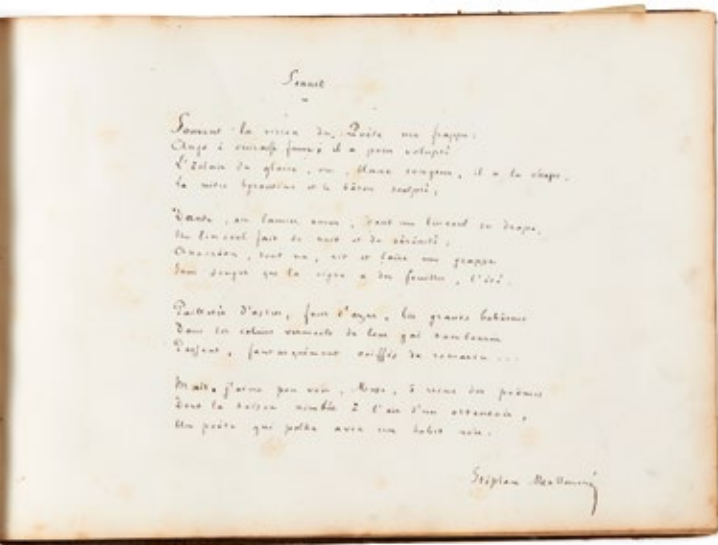 Sonnet
Souvent la vision du Poète me frappe :
Ange à cuirasse fauve, il a pour volupté
L'Eclair du glaive, ou, blanc songeur, il a la chape,
La mitre byzantine et le bâton sculpté.
Dante, au laurier amer, dans un linceul se drape,
Un linceul fait de nuit et de sérénité :
Anacréon, tout nu, rit et baise une grappe
Sans songer que la vigne a des feuilles, l'été.
Pailletés d'astres, fous d'azur, les grands bohèmes
Dans les éclairs vermeils de leur gai tambourin
Passent, fantasquement coiffés de romarin ...
Mais j'aime peu voir, Muse, ô reine des poèmes
Dont la toison nimbée a l'air d'un ostensoir,
Un poète qui polke avec un habit noir.
Stéphane Mallarmé